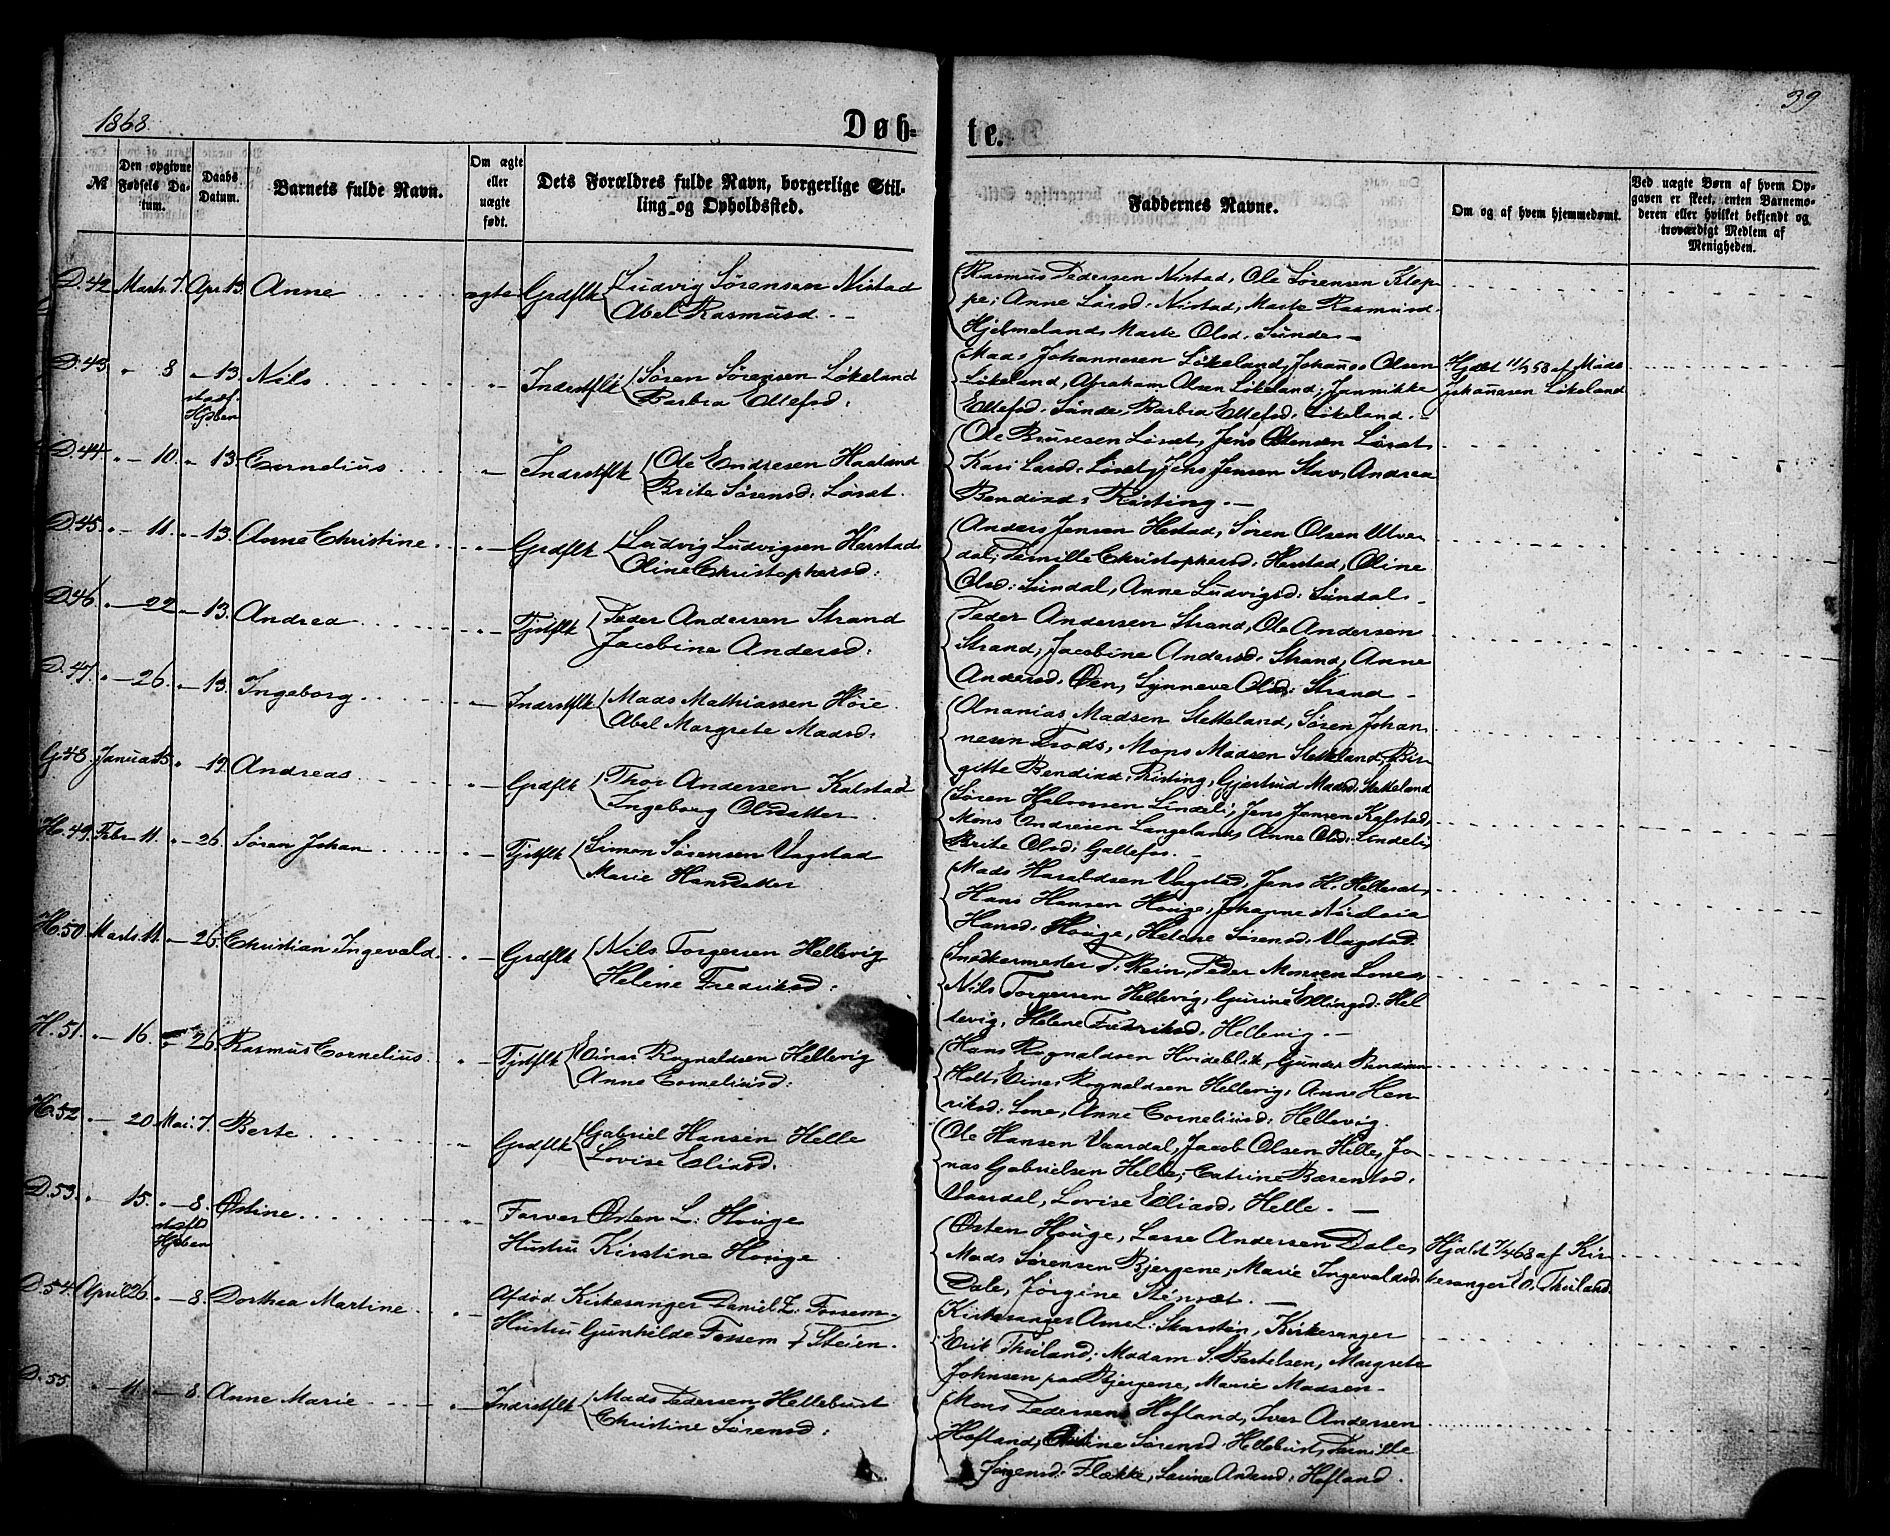 1868.
Døb-
te.
39
№
Den opgivne Fødsels Datum.
Daabs Datum.
Barnets fulde Navn.
Om ægte eller uægte født.
Dets Forældres fulde Navn, borgerlige Stilling og Opholdssted.
Faddernes Navne.
Om og af hvem hjemmedøbt.
Ved uægte Børn af hvem Opgaven er skeet, enten Barnemoderen eller hvilket bekjendt og troværdigt Medlem af Menigheden.
D. 42 Marts 7. Apr. 13. Anne ægte Grdflk Ludvig Sørensen Nistad
Abel Rasmusd.
Rasmus Pedersen Nistad, Ole Sørensen Klop-
pe, Anne Larsd. Nistad, Marte Rasmusd.
Hjelmeland, Marte Olsd. Sunde
D. 43. " 8 " 13. Nils " Indrstflk Søren Sørensen Løkeland
stadf. Kjøben
Barbra Ellefsd:
Mads Johannesen Løkeland, Johans Olsen
Løkeland, Abraham Olsen Løkeland, Jannikke
Ellefsd. Sunde, Barbra Ellefsd. Løkeland.
Hjdbt af Mads
Johanesen Løkeland
D. 44 " 10. " 13. Cornelius " Indrstflk Ole Endresen Haaland
Brite Sørensd: Løset.
Ole Løset, Jens Løset
Kari Larsd. Løset, Jens Jensen Stav, Andrea
Bendixd: Risting.
D. 45. " 11. " 13. Anne Christine " Grdflk Ludvig Ludvigsen Herstad
Oline Christophersd:
Anders Jensen Hestad, Søren Olsen Utve-
dal, Pernille Christophersd. Herstad, Oline
Olsd: Sundal, Anne Ludvigsd: Sundal
D. 46 " 22 " 13. Andrea " Tjstflk Peder Andersen Strand
Jacobine Andersd:
Peder Andersen Strand, Ole Andersen
Strand, Jacobine Andersd: Strand, Anne
Andersd. Øen, Synneve Olsd: Strand
D. 47. " 26. " 13. Ingeborg " Indrstflk Mads Mathiassen Høie
Abel Margrete Madsd:
Ananias Madsen Stekeland, Søren Johan-
nesen Mons Madsen Stekeland, Bir-
gitte Bendixd: Risting, Gjertrud Madsd: Stekeland
G. 48 Januar 15. " 19. Andreas " Grdflk Thor Andersen Kalstad
Ingeborg Olsdatter
Søren Halvorsen Lindeli, Jens Jensen Kalstad,
Mons Endresen Langeland, Anne Olsd: Lindeli,
Brite Olsd: Galtefos.
H. 49. Febr 11. " 26. Søren Johan " Tjstflk Simon Sørensen Vagstad
Marie Hansdatter
Mads Haraldsen Vagstad, Jens H. Hellesæt,
Hans Hansen Houge, Johanne
Hansd. Houge, Helene Sørensd: Vagstad.
H. 50. Marts 11. " 26. Christian Ingevald " Grdflk Nils Torgersen Hellevig
Helene Fredriksd:
Snedkermester P. Rein, Peder Monsen Lone
Nils Torgersen Hellevig, Gurine Ellingsd: Hel
levig, Helene Fredriksd. Hellevig.
H. 51. " 16. " 26. Rasmus Cornelius " Tjstflk Einar Rognaldsen Hellevig
Anne Corneliusd:
Hans Rognaldsen Hvideblik, Gunder
Holt, Einar Rognaldsen Hellevig, Anne Hen
riksd: Lone, Anne Corneliusd: Hellevig.
H. 52 " 20 Mai 7. Berte " Grdflk Gabriel Hansen Helle
Lovise Eliasd.
Ole Hansen Vaardal, Jacob Olsen Helle, Jo
nas Gabrielsen Helle, Catrine Bæsentsd.
Vaardal, Lovise Eliasd. Helle.
D. 53. " 15. " 8. Østine " Farver Østen L: Houge
stadf Kjøben
Hustru Kirstine Houge
Østen Houge, Lasse Andersen Dale,
Mads Sørensen Bjergene, Marie Ingevaldsd.
Dale, Jørgine
Hjdbt 7/4 68 af Kir
kesanger E. O. Thuland.
D. 54. April 26. " 8. Dorthea Martine " Afdød Kirkesanger Daniel L: Fossem
Hustru Gunhilde Fossem f Steien.
Kirkesanger Arne L: Skarstein, Kirkesanger
Erik Thuland, Madam S. Bertelsen, Margrete
Johnsen paa Bjergene, Marie Madsen
D. 55. " 11. " 8. Anne Marie " Indrstflk Mads Pedersen Hellebust
Christine Sørensd:
Mons Pedersen Hofland, Iver Andersen
Hofland, Sørensd. Hellebust, Pernille
Jørgensd: Flække, Larine Andersd: Hofland.